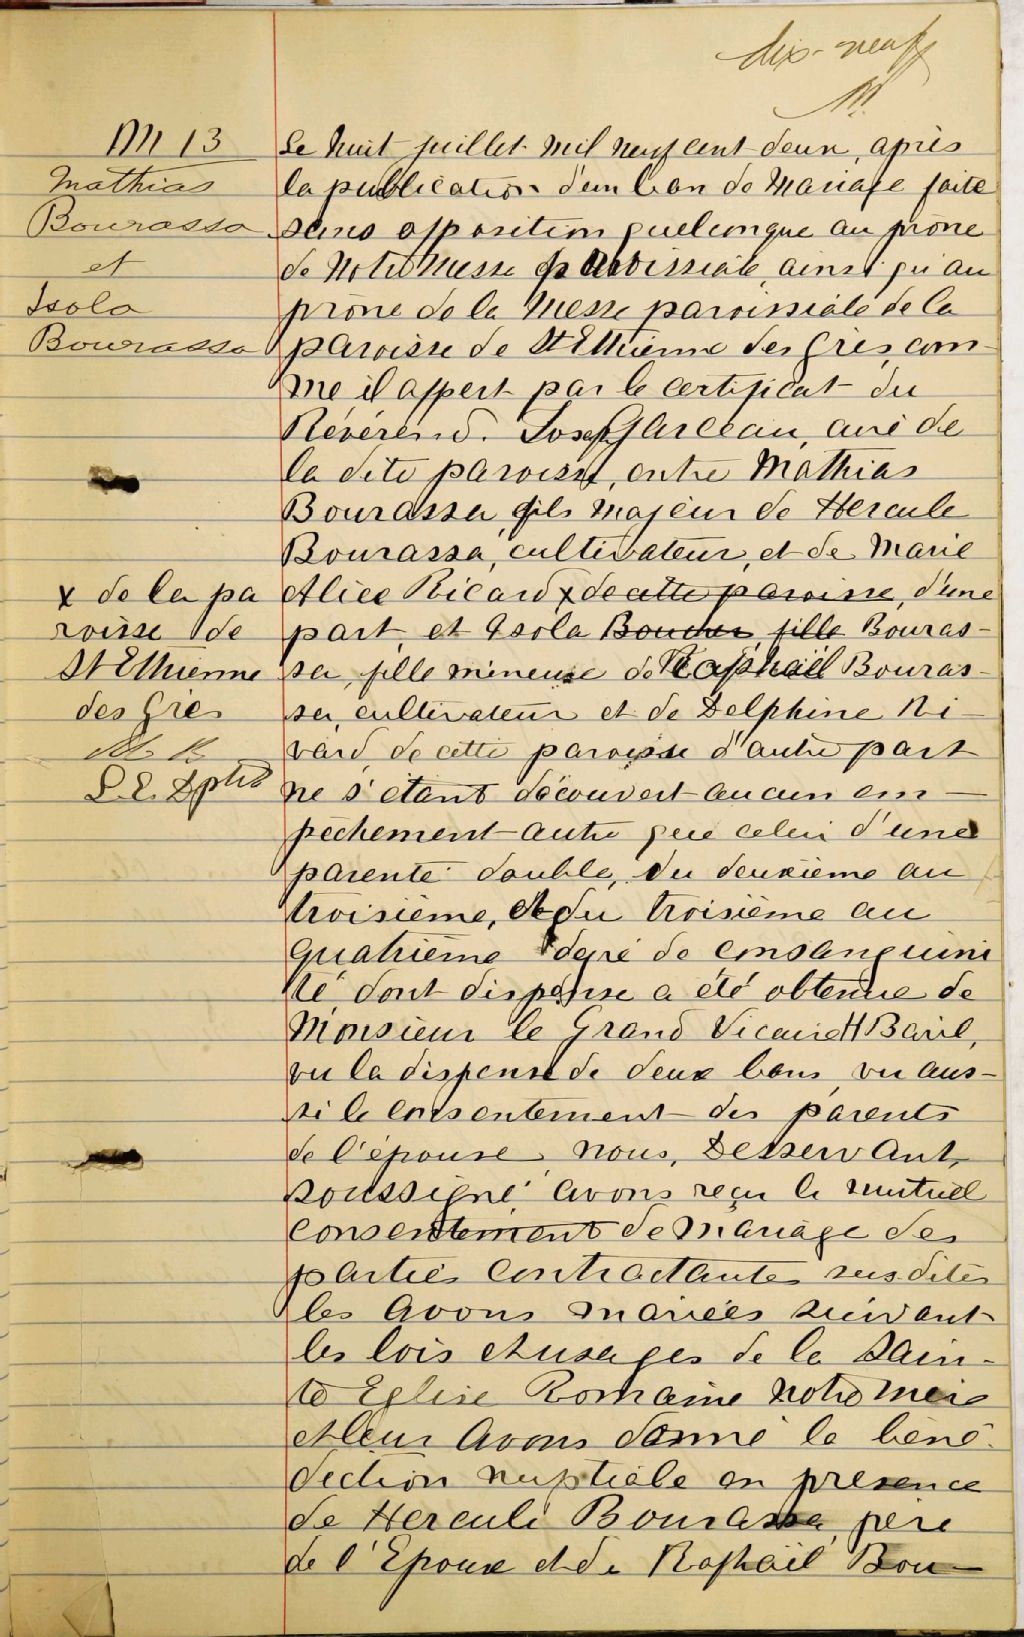 dix-neuf
M 13
Mathias
Bourassa
et
Isola
Bourassa
x de la pa
roisse de
St Ethienne
des Grès
Le huit juillet mil neuf cent deux, après
la publication d'un ban de Mariage faite
sans opposition quelconque au prône
de Notre Messe paroissiale, ainsi qu'au
prône de la Messe paroissiale de la
paroisse de St Ethienne des Grès, com-
me il appert par le certificat du
Révérend. Joseph Garceau, curé de
la dite paroisse, entre Mathias
Bourassa, fils majeur de Hercule
Bourassa, cultivateur, et de Marie
Alice Ricard x de cette paroisse, d'une
part, et Isola Boucher, fille Bouras-
sa, fille mineure de Raphaël Bouras-
sa, cultivateur et de Delphine Ri-
vard, de cette paroisse d'autre part
ne s'étant découvert aucun em-
pêchement autre que celui d'une
parenté double, du deuxième au
troisième, et du troisième au
quatrième degré de consanguini
té dont dispense a été obtenue de
Monsieur le Grand Vicaire H Baril,
vu la dispense de deux bans, vu aus-
si le consentement des parents
de l'épouse, nous, Desservant,
soussigné, avons reçu le mutuel
consentement de Mariage des
parties contractantes susdites
les avons mariées suivant
les lois et usages de la Sain-
te Eglise Romaine Notre Mère
et leur avons donné la béné-
diction nuptiale en présence
de Hercule Bourassa, père
de l'Epoux et de Raphaël Bou-